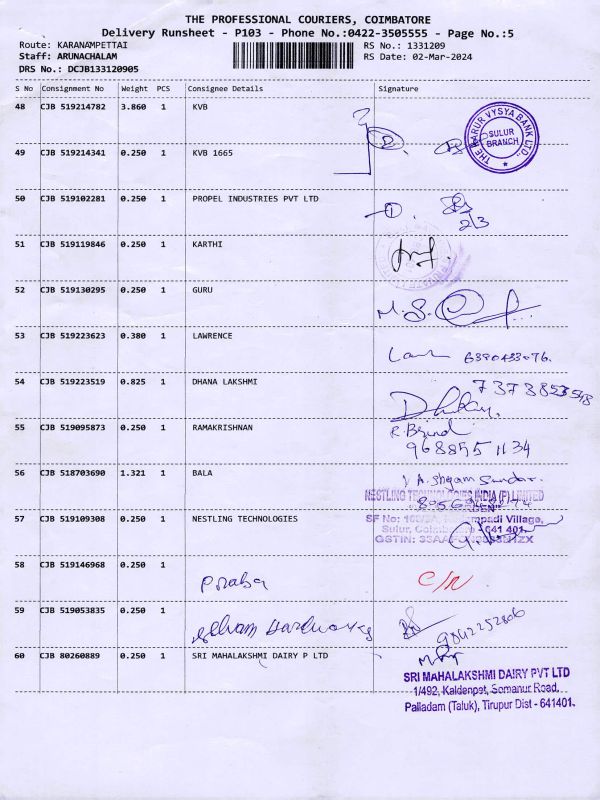 THE PROFESSIONAL COURIERS, COIMBATORE
Delivery Runsheet - P103 - Phone No.:0422-3505555 - Page No.:5
Route: KARANAMPETTAI
RS No.: 1331209
Staff: ARUNACHALAM
RS Date: 02-Mar-2024
DRS No.: DCJB133120905
S No Consignment No Weight PCS Consignee Details Signature
48 CJB 519214782 3.860 1 KVB
THE KARUR VYSYA BANK LTD.
SULUR
BRANCH
49 CJB 519214341 0.250 1 KVB 1665
50 CJB 519102281 0.250 1 PROPEL INDUSTRIES PVT LTD
2/3
51 CJB 519119846 0.250 1 KARTHI
52 CJB 519130295 0.250 1 GURU
53 CJB 519223623 0.380 1 LAWRENCE
6380433076.
54 CJB 519223519 0.825 1 DHANA LAKSHMI
55 CJB 519095873 0.250 1 RAMAKRISHNAN
9688551134
56 CJB 518703690 1.321 1 BALA
A. Shyam Sundar.
NESTLING TECHNOLOGIES INDIA (P) LIMITED
57 CJB 519109308 0.250 1 NESTLING TECHNOLOGIES
58 CJB 519146968 0.250 1 Praba
59 CJB 519053835 0.250 1
9842252806
60 CJB 80260889 0.250 1 SRI MAHALAKSHMI DAIRY P LTD
SRI MAHALAKSHMI DAIRY PVT LTD
1/492, Kaldenpet, Somanur Road,
Palladam (Taluk), Tirupur Dist - 641401.